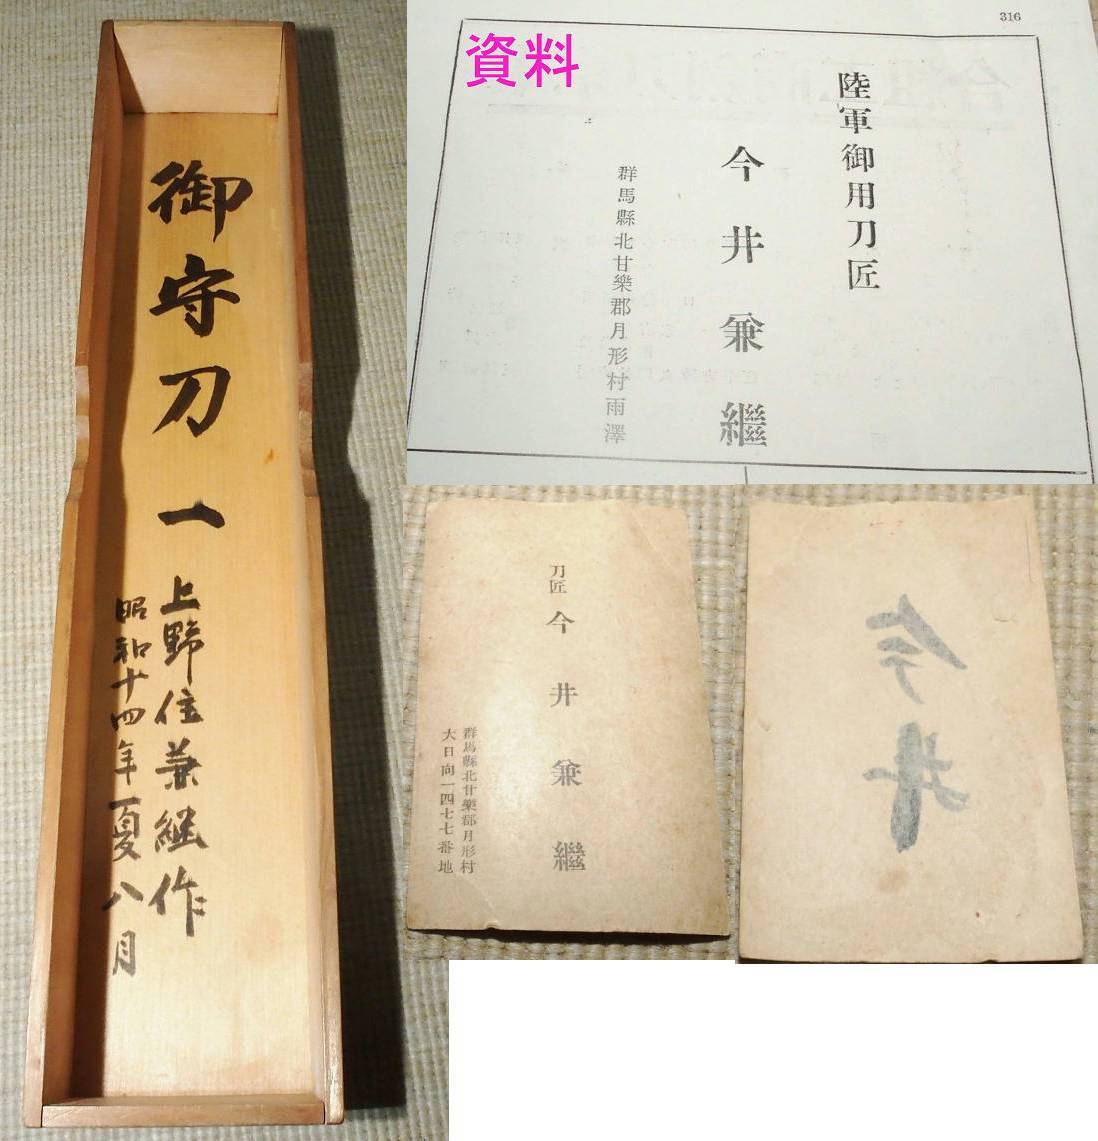 御守刀 一
上野住兼継作
昭和十四年夏八月
316
資料
陸軍御用刀匠
今井兼繼
群馬縣北甘樂郡月形村雨澤
刀匠 今井兼繼
群馬縣北甘樂郡月形村
大日向一四七七番地
今井